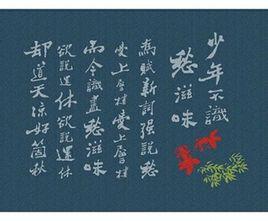 少年不識
愁滋味
為賦新詞强說愁
愛上層樓愛上層樓
而今識盡愁滋味
欲說還休欲說還休
却道天涼好箇秋